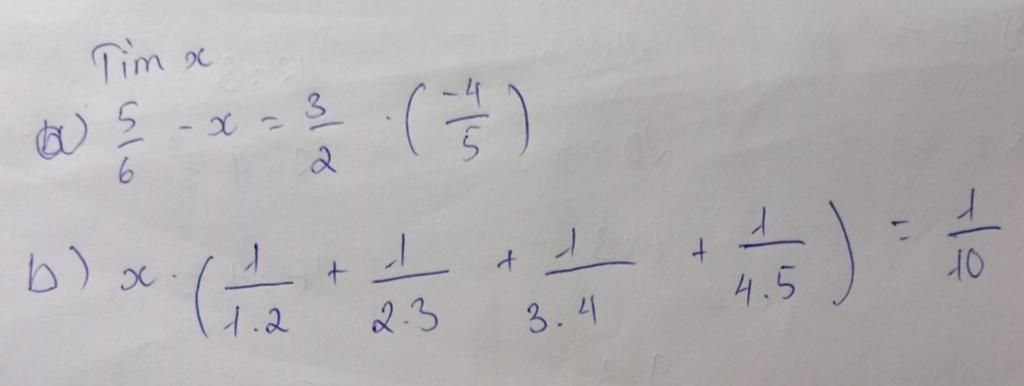 Tìm x
a) 5/6 - x = 3/2 . (-4/5)
b) x . (1/1.2 + 1/2.3 + 1/3.4 + 1/4.5) = 1/10